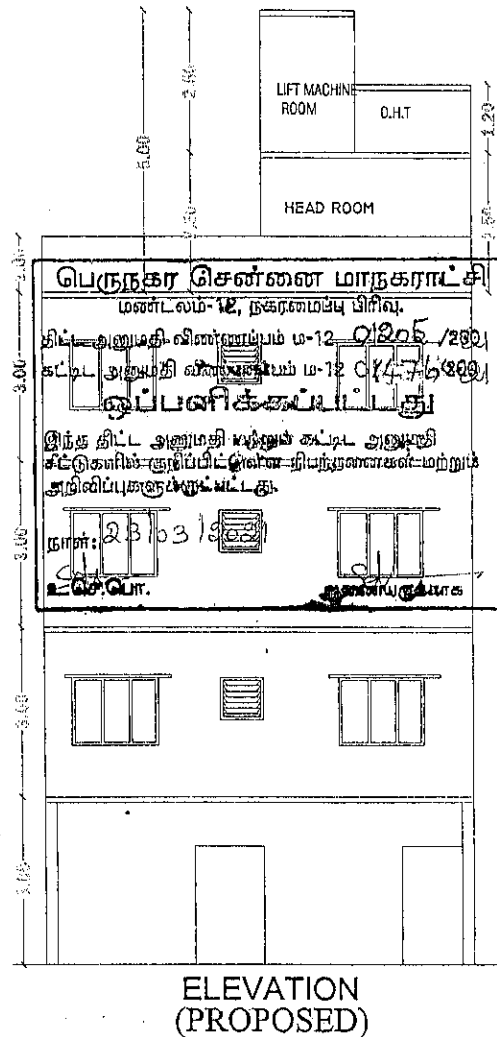 2.00
5.00
LIFT MACHINE
ROOM
O.H.T
1.20
HEAD ROOM
பெருநகர சென்னை மாநகராட்சி
மண்டலம்-12, நகரமைப்பு பிரிவு.
திட்ட அனுமதி விண்ணப்பம் ம-12 0205 /2021
கட்டிட அனுமதி ம-12
ஒப்பளிக்கப்பட்டது
இந்த திட்ட அனுமதி மற்றும் கட்டிட அனுமதி
சீட்டுகளில் குறிப்பிட்டுள்ள நிபந்தனைகள் மற்றும்
அறிவிப்புகளுக்குட்பட்டது.
நாள்: 23/03/2021
உ.செ.பொ.
ஆணையருக்காக
3.00
3.00
3.00
3.00
ELEVATION
(PROPOSED)